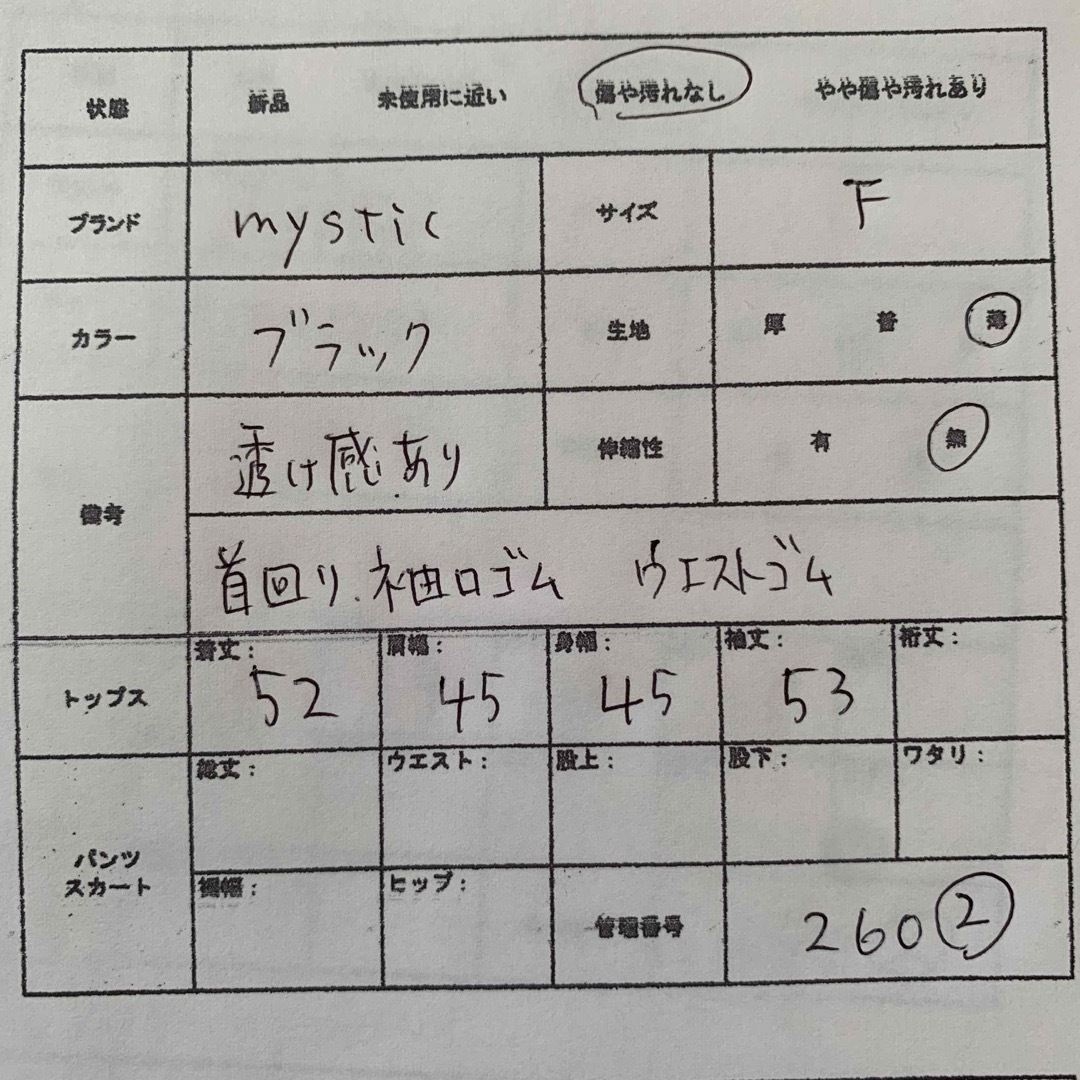 状態 新品 未使用に近い 傷や汚れなし やや傷や汚れあり
ブランド mystic サイズ F
カラー ブラック 生地 厚 普 薄
備考 透け感あり 伸縮性 有 無
首回り、袖口ゴム ウエストゴム
トップス 着丈: 52 肩幅: 45 身幅: 45 袖丈: 53 裄丈:
パンツ
スカート
総丈: ウエスト: 股上: 股下: ワタリ:
裾幅: ヒップ: 管理番号 260②